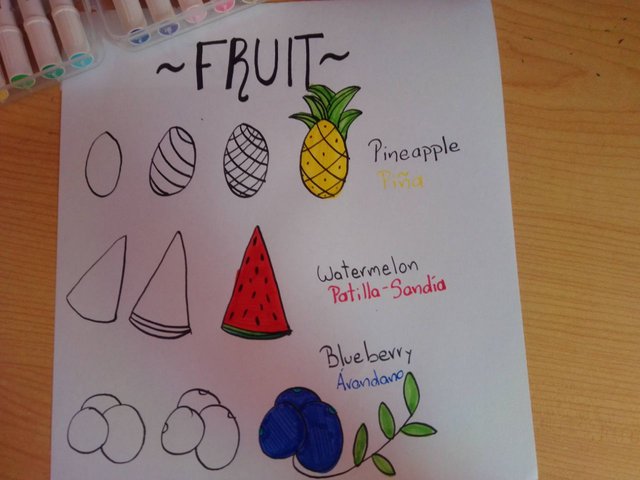 ~FRUIT~
Pineapple
Piña
Watermelon
Patilla-Sandía
Blueberry
Árandano